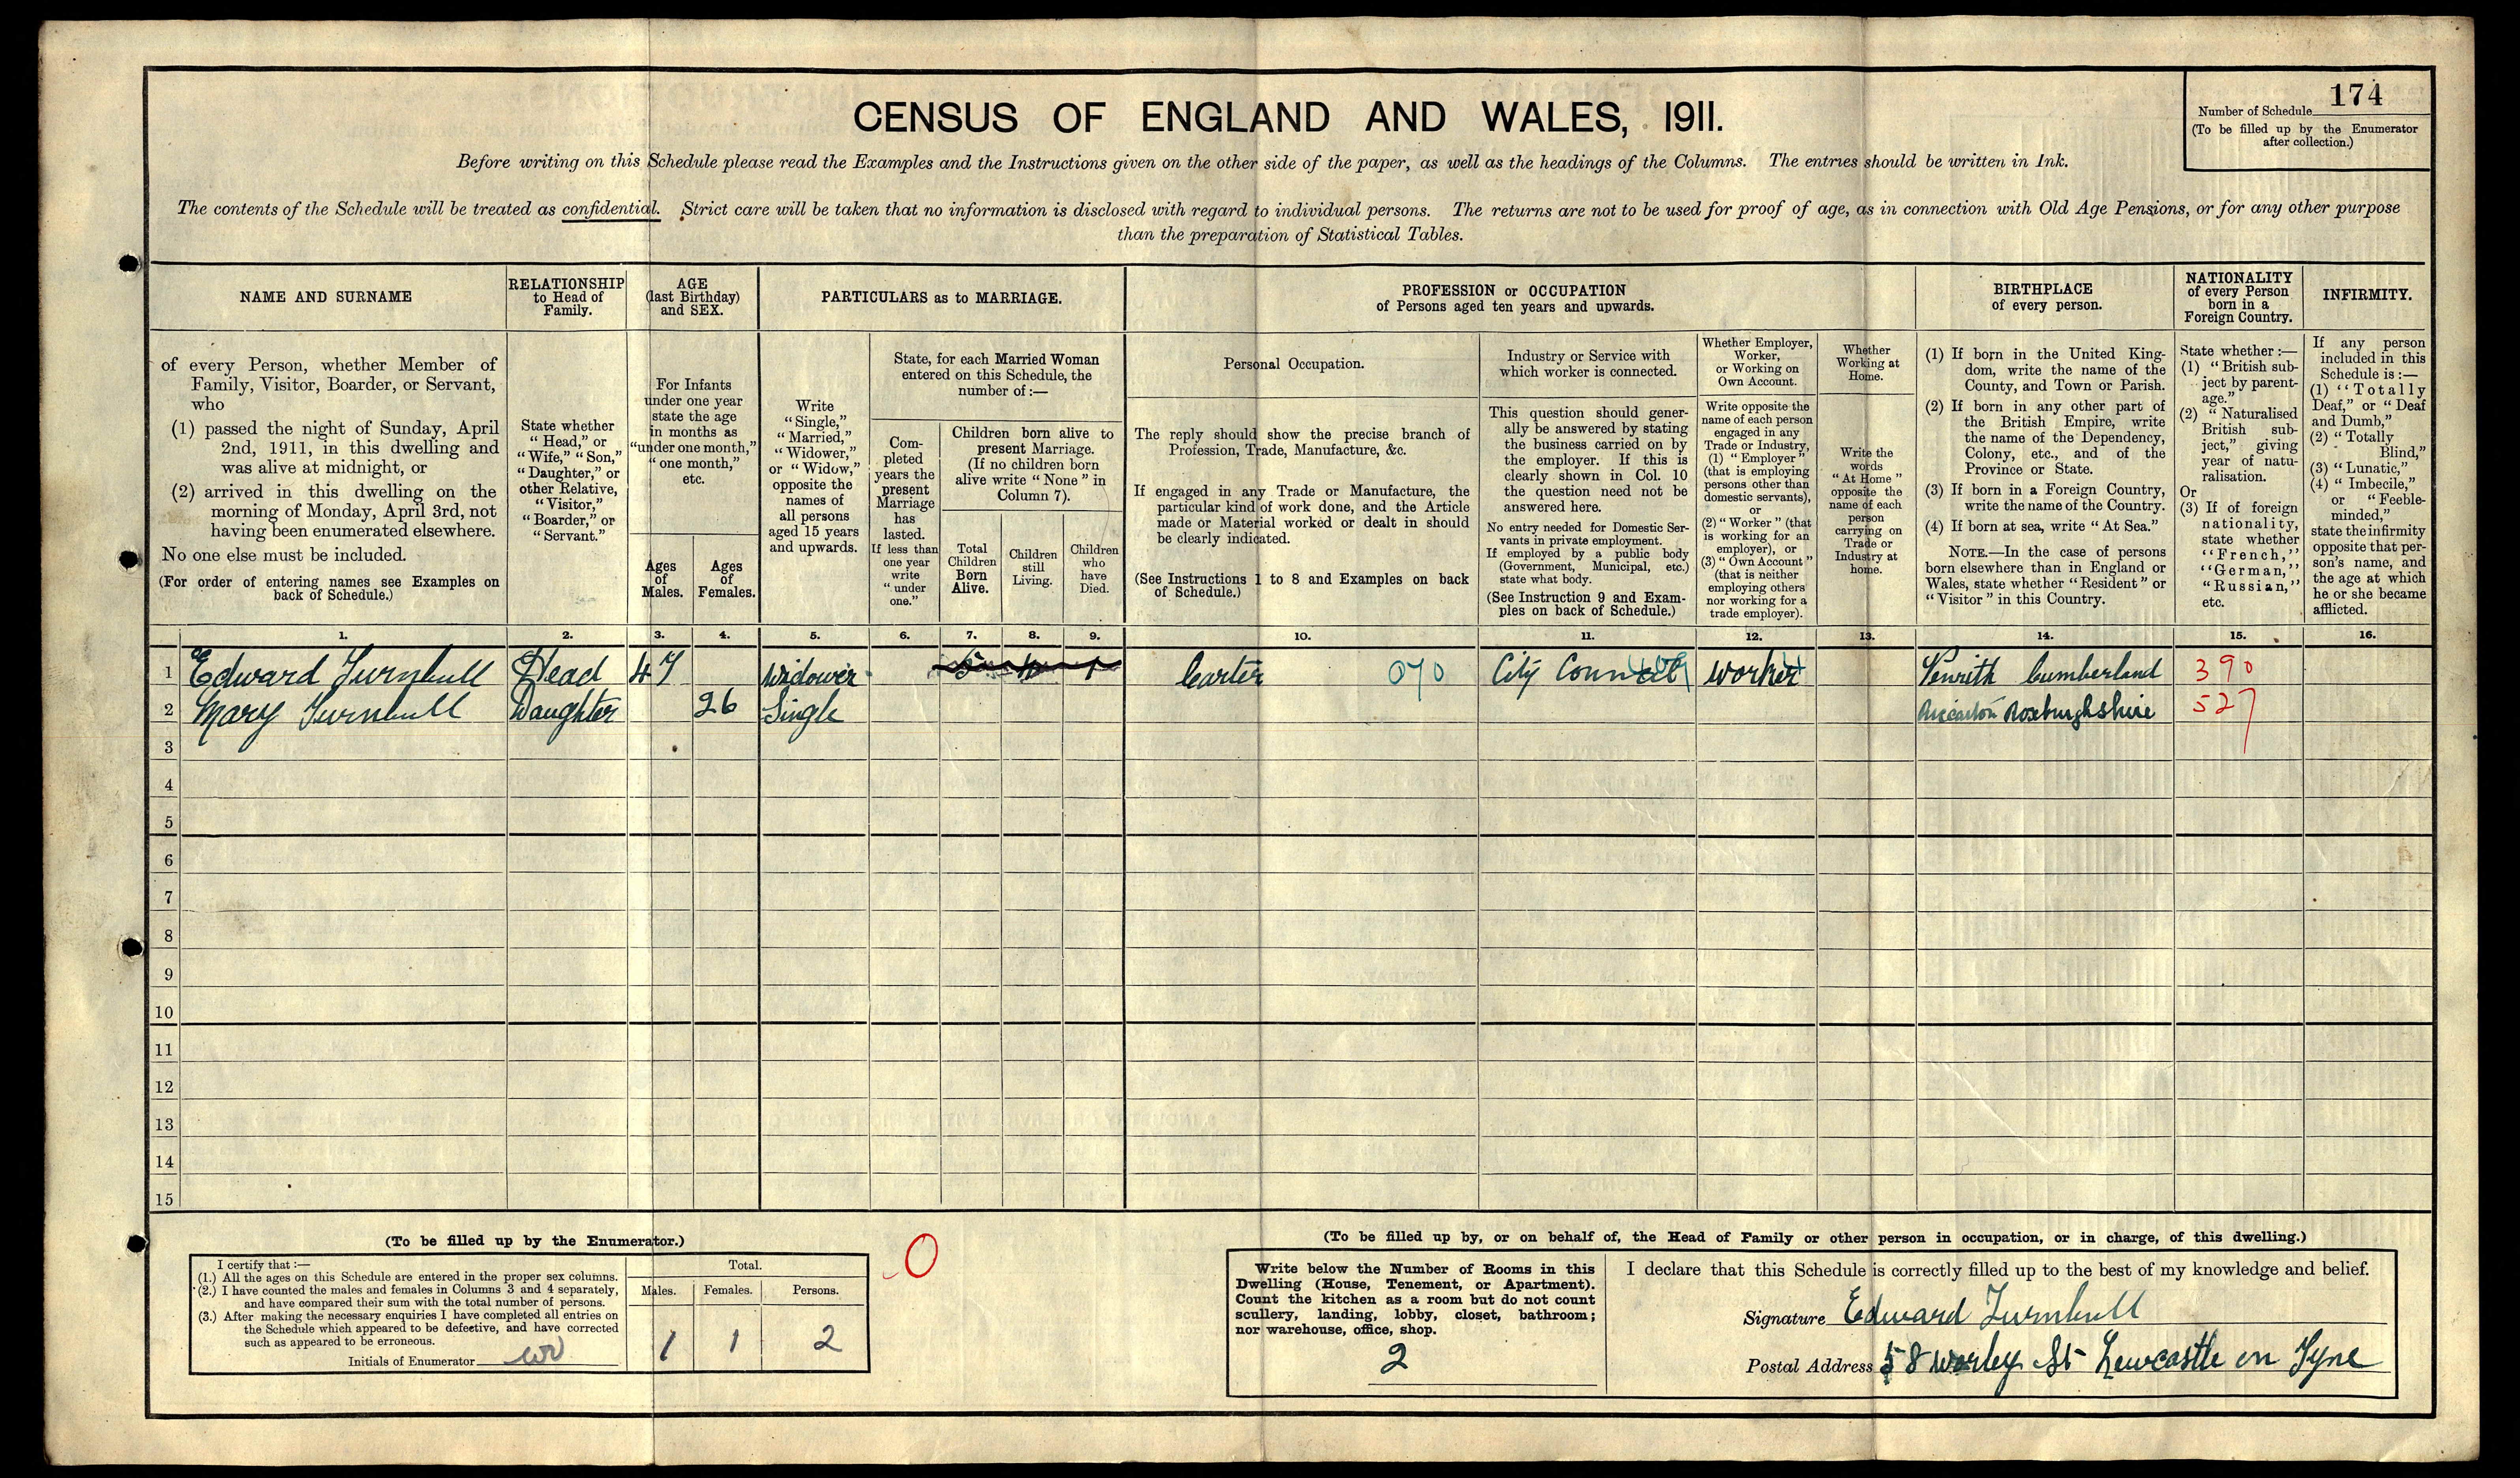 174
Number of Schedule
(To be filled up by the Enumerator
after collection.)
CENSUS OF ENGLAND AND WALES, 1911.
Before writing on this Schedule please read the Examples and the Instructions given on the other side of the paper, as well as the headings of the Columns. The entries should be written in Ink.
The contents of the Schedule will be treated as confidential. Strict care will be taken that no information is disclosed with regard to individual persons. The returns are not to be used for proof of age, as in connection with Old Age Pensions, or for any other purpose
than the preparation of Statistical Tables.
NAME AND SURNAME
of every Person, whether Member of
Family, Visitor, Boarder, or Servant,
who
(1) passed the night of Sunday, April
2nd, 1911, in this dwelling and
was alive at midnight, or
(2) arrived in this dwelling on the
morning of Monday, April 3rd, not
having been enumerated elsewhere.
No one else must be included.
(For order of entering names see Examples on
back of Schedule.)
RELATIONSHIP
to Head of
Family.
State whether
"Head," or
"Wife," "Son,"
"Daughter," or
other Relative,
"Visitor,"
"Boarder," or
"Servant."
AGE
(last Birthday)
and SEX.
For Infants
under one year
state the age
in months as
"under one month,"
"one month,"
etc.
Ages
of
Males.
Ages
of
Females.
PARTICULARS as to MARRIAGE.
Write
"Single,"
"Married,"
"Widower,"
or "Widow,"
opposite the
names of
all persons
aged 15 years
and upwards.
State, for each Married Woman
entered on this Schedule, the
number of:—
Com-
pleted
years the
present
Marriage
has
lasted.
If less than
one year
write
"under
one."
Children born alive to
present Marriage.
(If no children born
alive write "None" in
Column 7).
Total
Children
Born
Alive.
Children
still
Living.
Children
who
have
Died.
PROFESSION or OCCUPATION
of Persons aged ten years and upwards.
Personal Occupation.
The reply should show the precise branch of
Profession, Trade, Manufacture, &c.
If engaged in any Trade or Manufacture, the
particular kind of work done, and the Article
made or Material worked or dealt in should
be clearly indicated.
(See Instructions 1 to 8 and Examples on back
of Schedule.)
Industry or Service with
which worker is connected.
This question should gener-
ally be answered by stating
the business carried on by
the employer. If this is
clearly shown in Col. 10
the question need not be
answered here.
No entry needed for Domestic Ser-
vants in private employment.
If employed by a public body
(Government, Municipal, etc.)
state what body.
(See Instruction 9 and Exam-
ples on back of Schedule.)
Whether Employer,
Worker,
or Working on
Own Account.
Write opposite the
name of each person
engaged in any
Trade or Industry,
(1) "Employer"
(that is employing
persons other than
domestic servants),
or
(2) "Worker" (that
is working for an
employer), or
(3) "Own Account"
(that is neither
employing others
nor working for a
trade employer).
Whether
Working at
Home.
Write the
words
"At Home"
opposite the
name of each
person
carrying on
Trade or
Industry at
home.
BIRTHPLACE
of every person.
(1) If born in the United King-
dom, write the name of the
County, and Town or Parish.
(2) If born in any other part of
the British Empire, write
the name of the Dependency,
Colony, etc., and of the
Province or State.
(3) If born in a Foreign Country,
write the name of the Country.
(4) If born at sea, write "At Sea."
NOTE.—In the case of persons
born elsewhere than in England or
Wales, state whether "Resident" or
"Visitor" in this Country.
NATIONALITY
of every Person
born in a
Foreign Country.
State whether:—
(1) "British sub-
ject by parent-
age."
(2) "Naturalised
British sub-
ject," giving
year of natu-
ralisation.
Or
(3) If of foreign
nationality,
state whether
"French,"
"German,"
"Russian,"
etc.
INFIRMITY.
If any person
included in this
Schedule is:—
(1) "Totally
Deaf," or "Deaf
and Dumb,"
(2) "Totally
Blind,"
(3) "Lunatic,"
(4) "Imbecile,"
or "Feeble-
minded,"
state the infirmity
opposite that per-
son's name, and
the age at which
he or she became
afflicted.
1. 2. 3. 4. 5. 6. 7. 8. 9. 10. 11. 12. 13. 14. 15. 16.
1 Edward Turnbull Head 47 Widower Carter 070 City Council Worker Penrith Cumberland 390
2 Mary Turnbull Daughter 26 Single Riccarton Roxburghshire 527
3
4
5
6
7
8
9
10
11
12
13
14
15
(To be filled up by the Enumerator.)
I certify that:—
(1.) All the ages on this Schedule are entered in the proper sex columns.
(2.) I have counted the males and females in Columns 3 and 4 separately,
and have compared their sum with the total number of persons.
(3.) After making the necessary enquiries I have completed all entries on
the Schedule which appeared to be defective, and have corrected
such as appeared to be erroneous.
Initials of Enumerator
Total.
Males. Females. Persons.
1 1 2
0
(To be filled up by, or on behalf of, the Head of Family or other person in occupation, or in charge, of this dwelling.)
Write below the Number of Rooms in this
Dwelling (House, Tenement, or Apartment).
Count the kitchen as a room but do not count
scullery, landing, lobby, closet, bathroom;
nor warehouse, office, shop.
2
I declare that this Schedule is correctly filled up to the best of my knowledge and belief.
Signature Edward Turnbull
Postal Address 58 Worley St Newcastle on Tyne